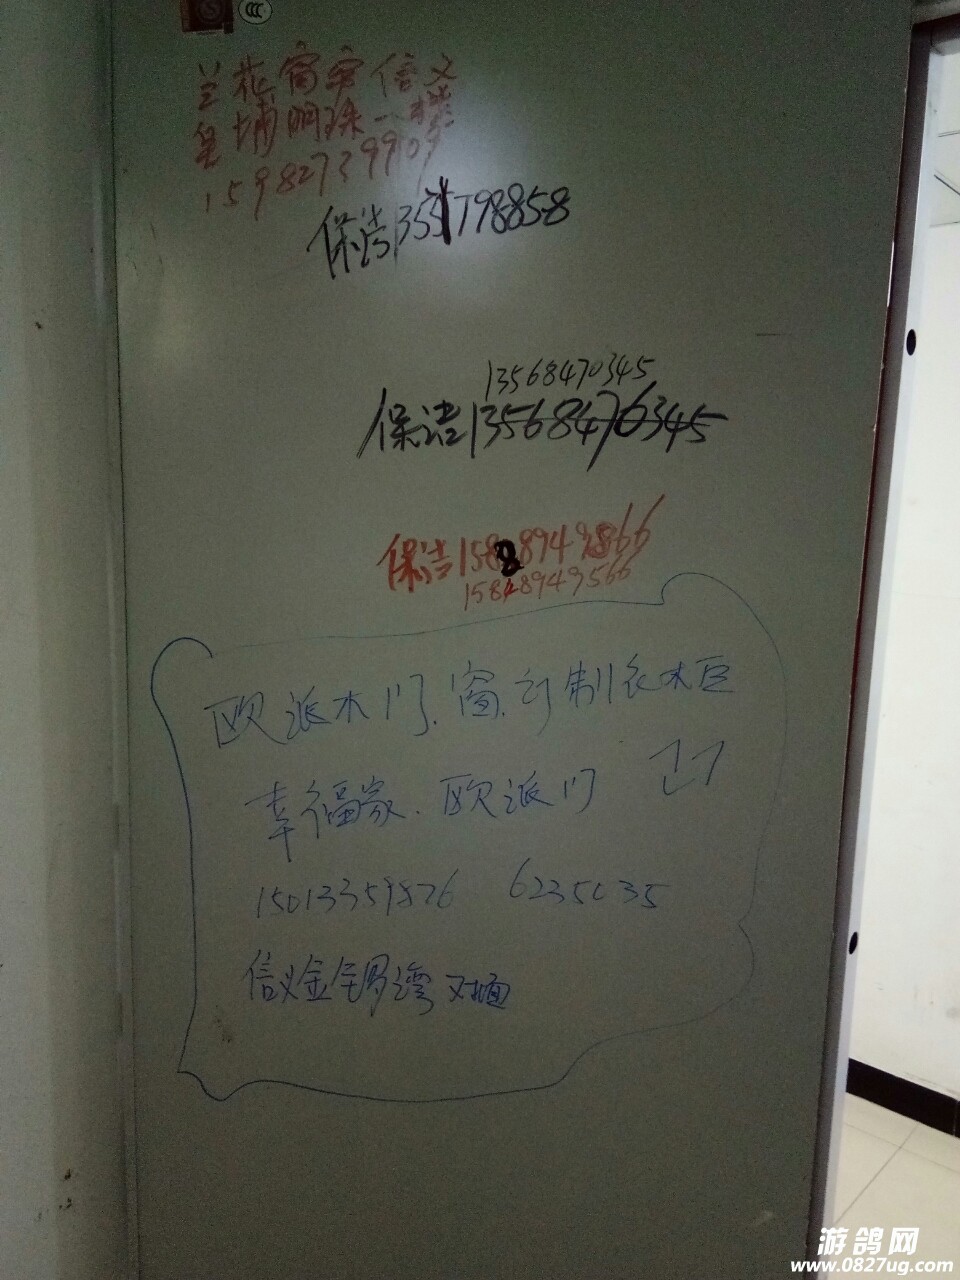 CCC
兰花窗帘 信义
皇埔明珠一楼
15982739909
保洁13551798858
13568470345
保洁13568476345
保洁15828949866
15848949566
欧派木门.窗.订制衣木巨
幸福家.欧派门
15013359826 6235035
信义金锣湾对面
游鸽网
www.0827ug.com